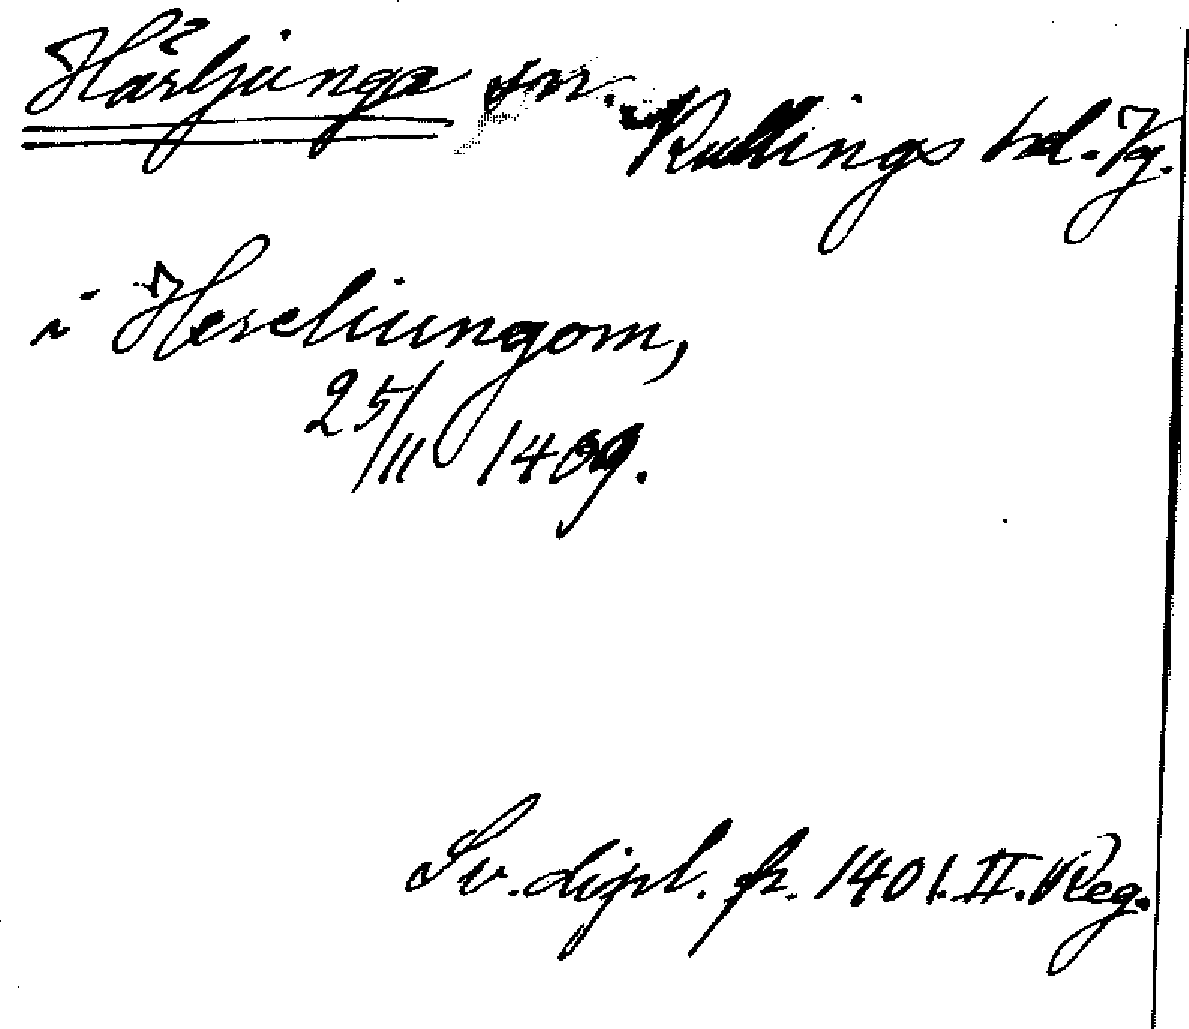 Härljunga sn. Kullings hd. Vg.
i Hereliungom,
25/11 1409.
Sv. dipl. fr. 1401. II. Reg.